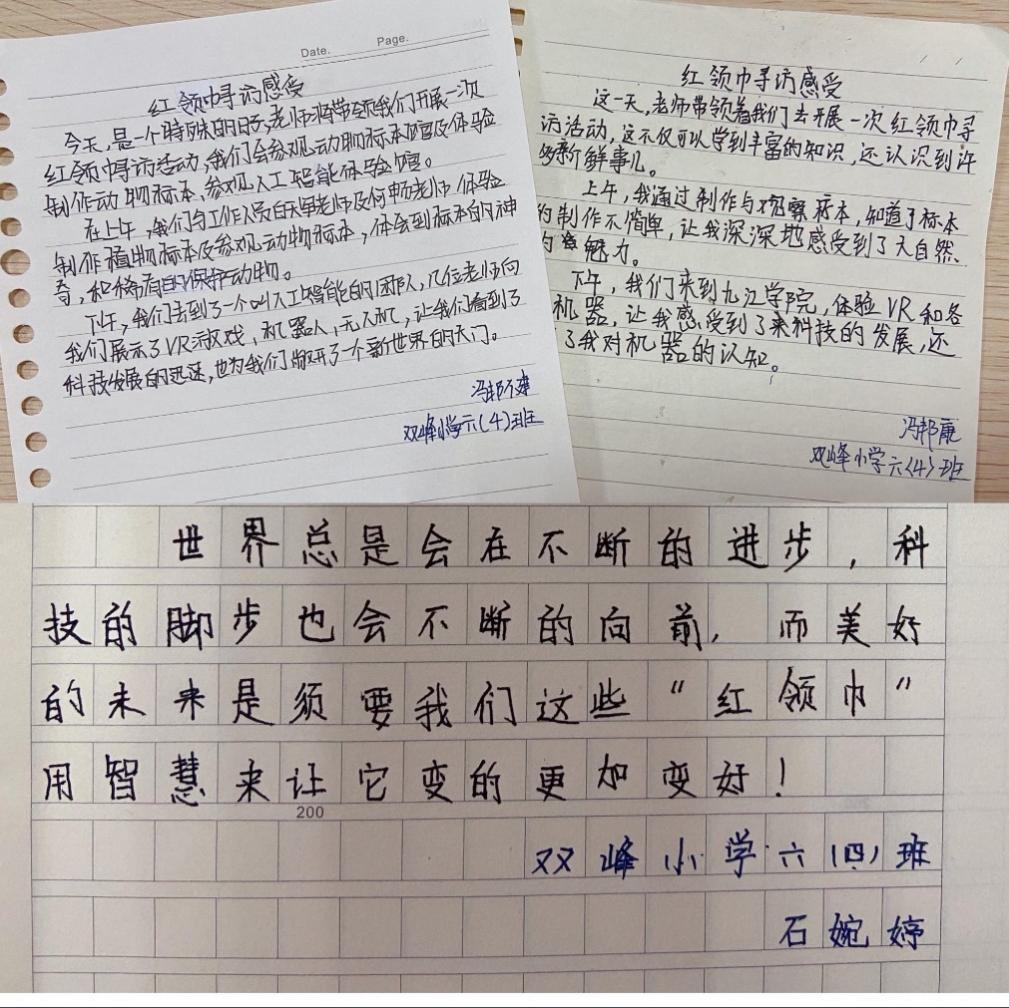 Date. Page.
红领巾寻访感受
今天,是一个特殊的日子,老师将带领我们开展一次
红领巾寻访活动,我们会参观动物标本馆及体验
制作动物标本、参观人工智能体验馆。
在上午,我们与工作人员白天军老师及何畅老师体验
制作植物标本及参观动物标本,体会到标本的神
奇,和稀有的保护动物。
下午,我们去到了一个叫人工智能的团队,几位老师向
我们展示了VR游戏,机器人,无人机,让我们看到了
科技发展的迅速,也为我们打开了一个新世界的大门。
冯邦
双峰小学六(4)班
红领巾寻访感受
这一天,老师带领着我们去开展一次红领巾寻
访活动,这不仅可以学到丰富的知识,还认识到许
多新鲜事儿。
上午,我通过制作与观察标本,知道了标本
的制作不简单,让我深深地感受到了大自然
的魅力。
下午,我们来到九江学院,体验VR和各
机器,让我感受到了来科技的发展,还
了我对机器的认知。
冯邦康
双峰小学六(4)班
世界总是会在不断的进步,科
技的脚步也会不断的向前,而美好
的未来是须要我们这些“红领巾”
用智慧来让它变的更加变好!
200
双峰小学六(四)班
石婉婷